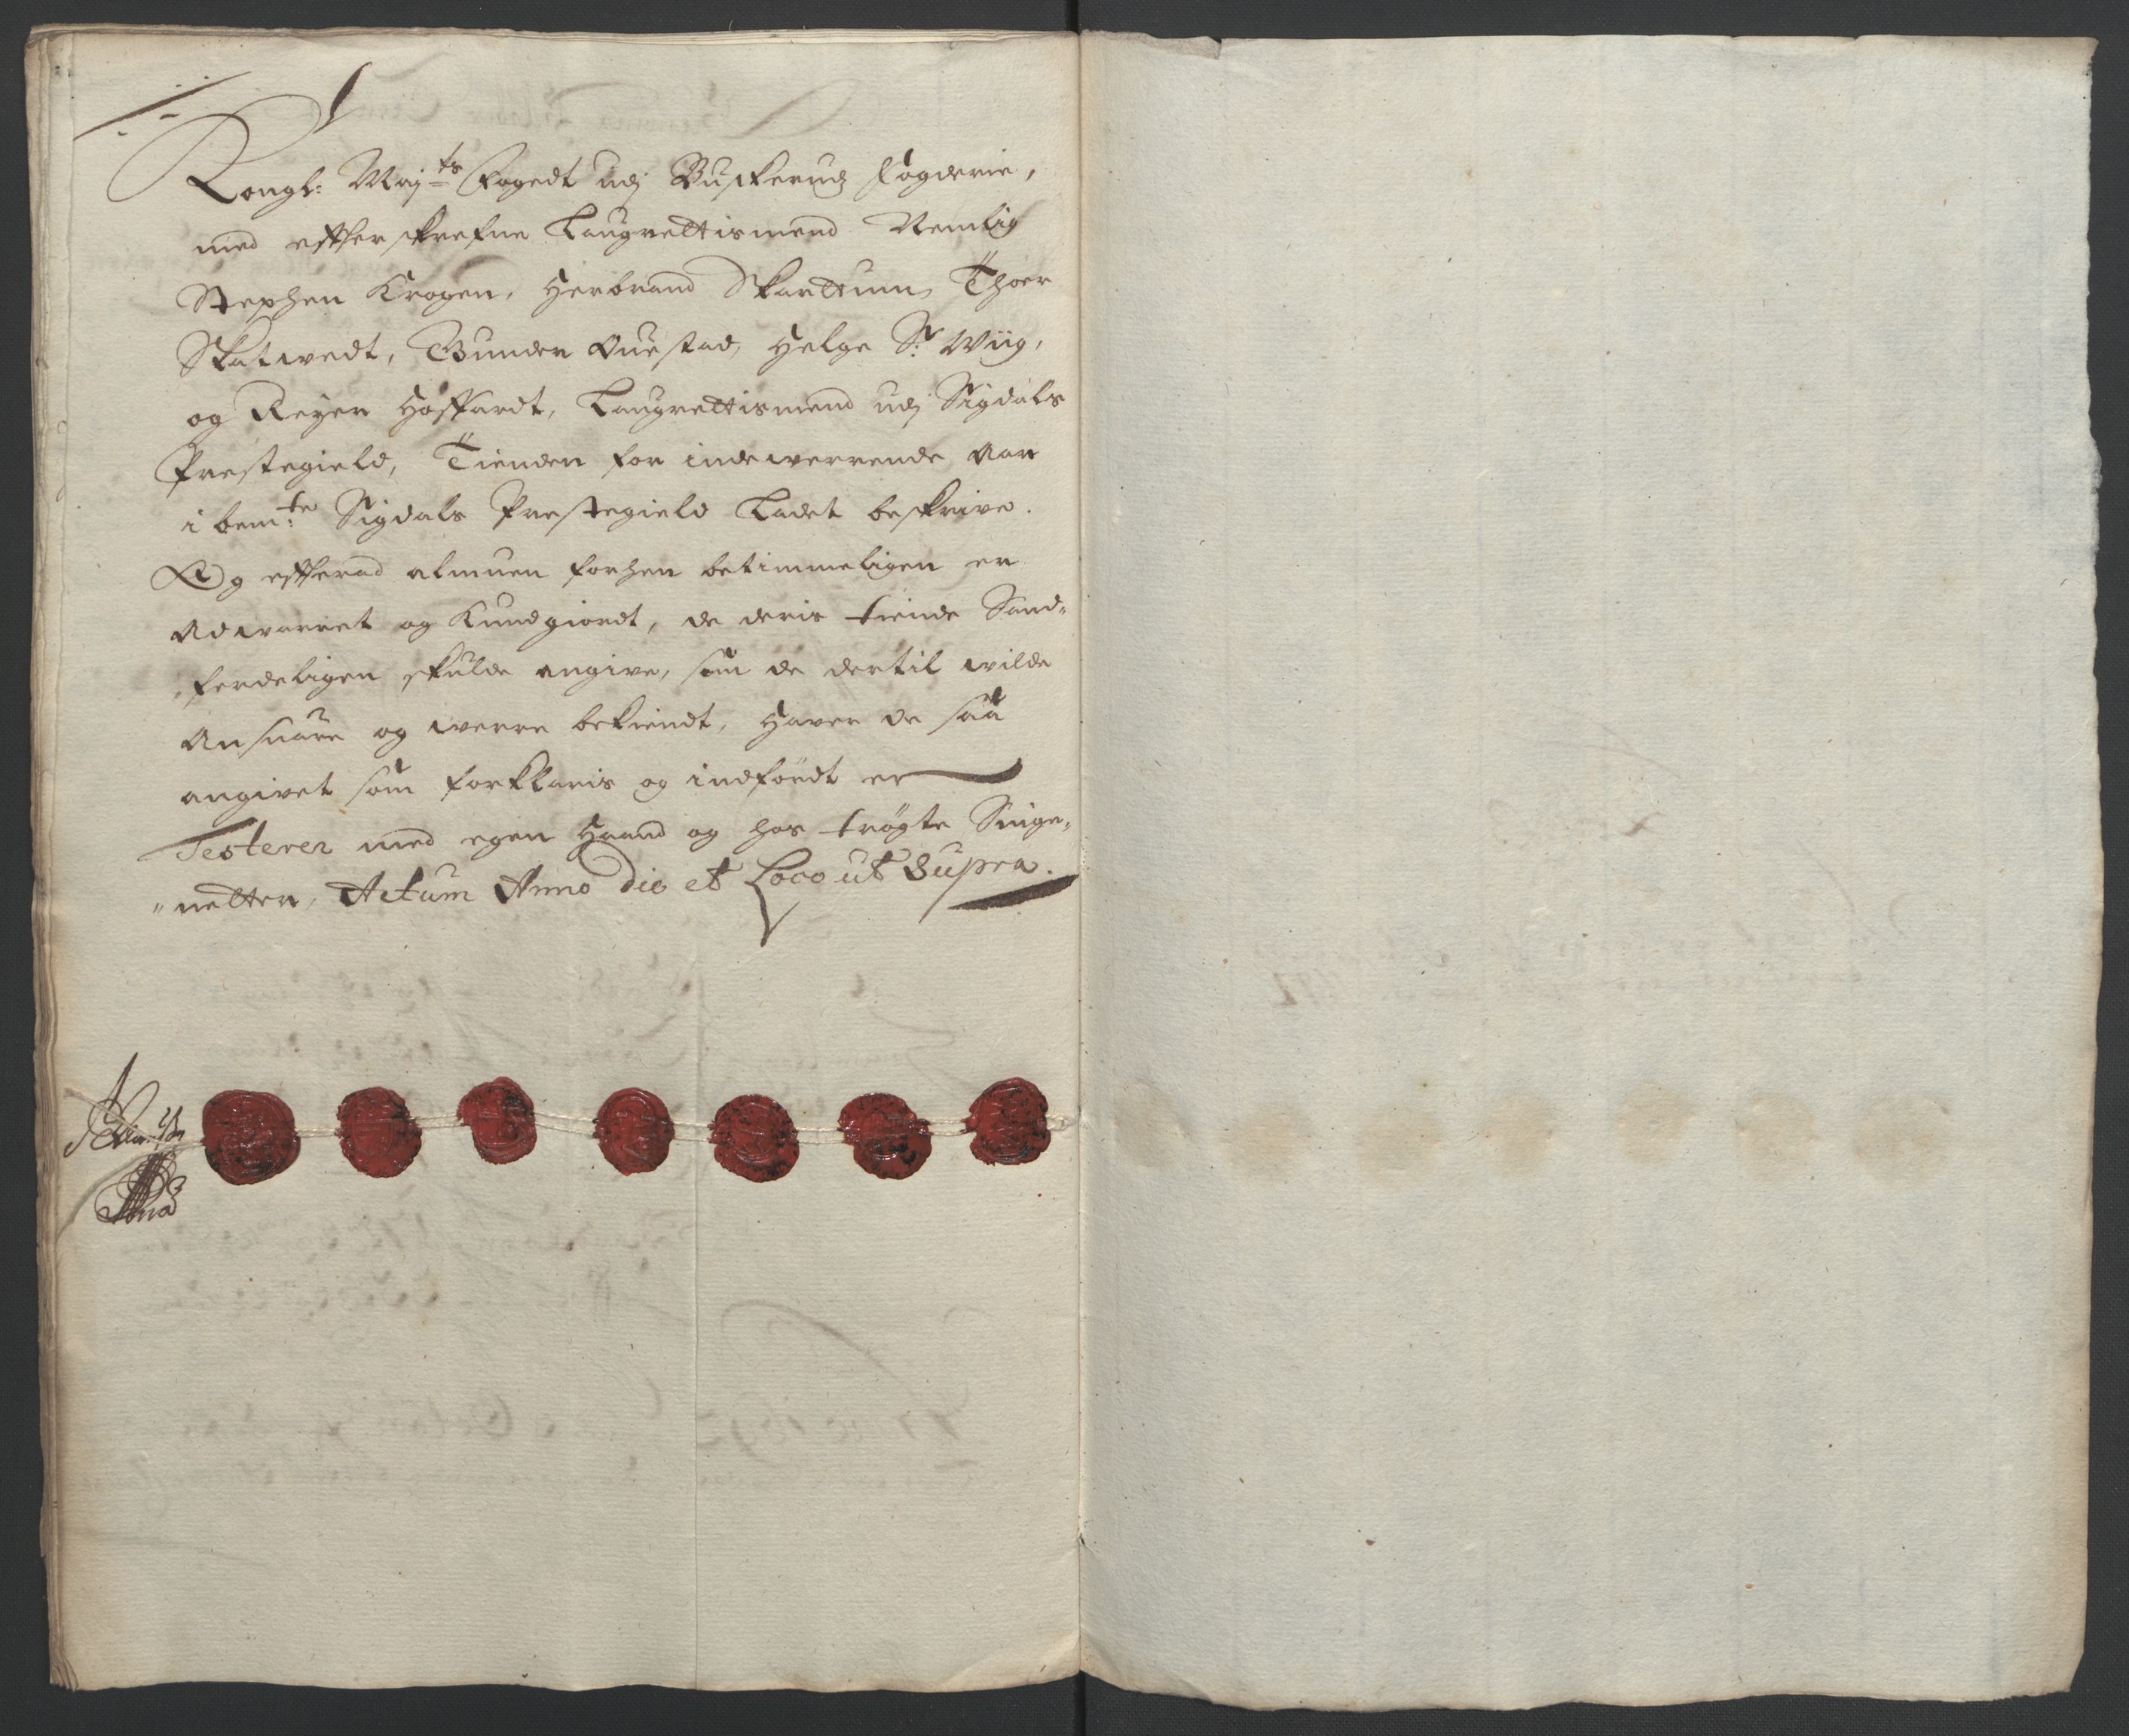 Kongl: Maj:ts Fogedt udj Buskeruds Fogderie,
med effterskrefne Laugrettismend Nemlig
Stephen Kragen, Herbrand Skarttum, Thoer
Skatvedt, Gunder Ouestad, Helge S: Wiig,
og Reyer Hoffardt, Laugrettismend udj Sigdals
Prestegield, Tienden for indewerrende Aar
i bem:te Sigdals Prestegield Ladet beskrive.
Og efftersom almuen forhen betimmeligen er
Adwarret og Kundgiordt, de deris tiende Sand-
ferdeligen skulde angive, som de dertil wilde
Ansuare og werre bekiendt, Haver de saa
angivet som forklaris og indfördt er
Testerer med egen Haand og hos trögte Singe-
netter, Actum Anno die et Loco ut Supra.